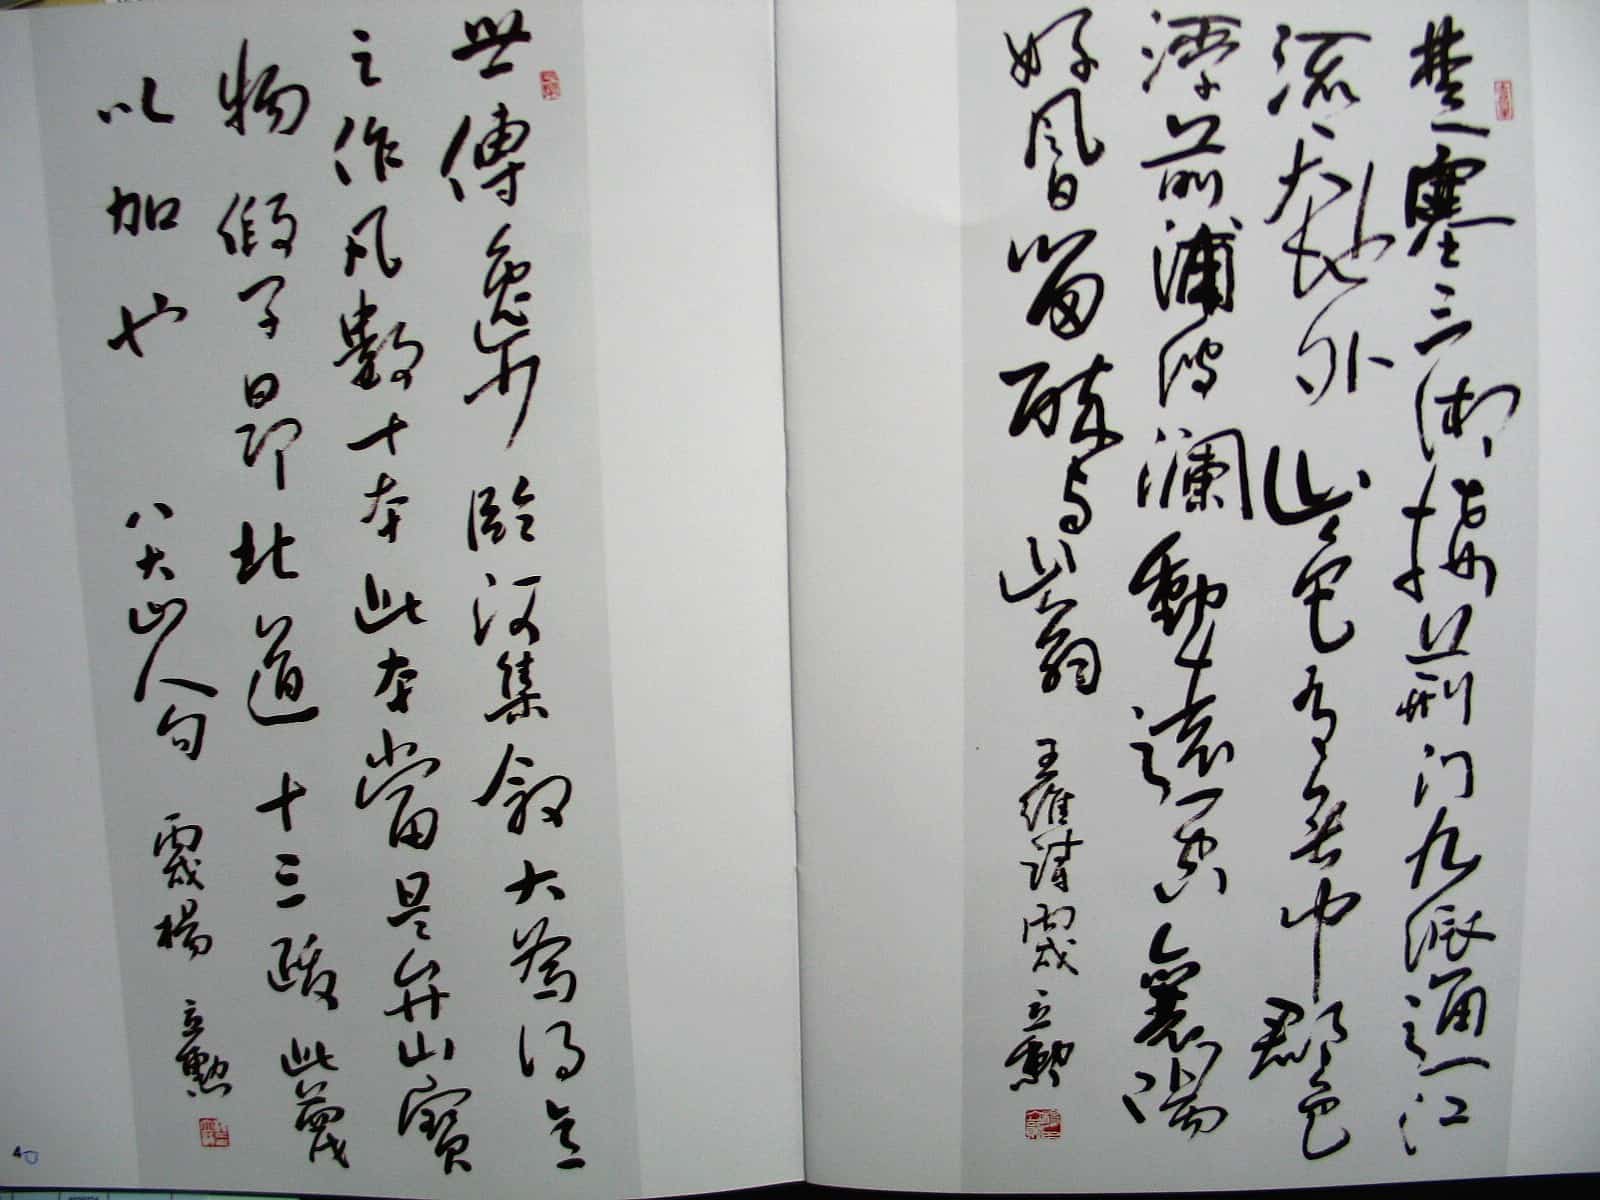 楚塞三湘接荆门九派通江
流天地外山色有無中郡邑
浮前浦波瀾動遠空襄陽
好風日留醉与山翁
王維詩 丙戌 立勳
世傳逸少臨河集叙大為得意
之作凡數十本此本當是弁山寶
物假子昂北道十三跋此蔑
以加也
八大山人句 丙戌 楊立勳
40